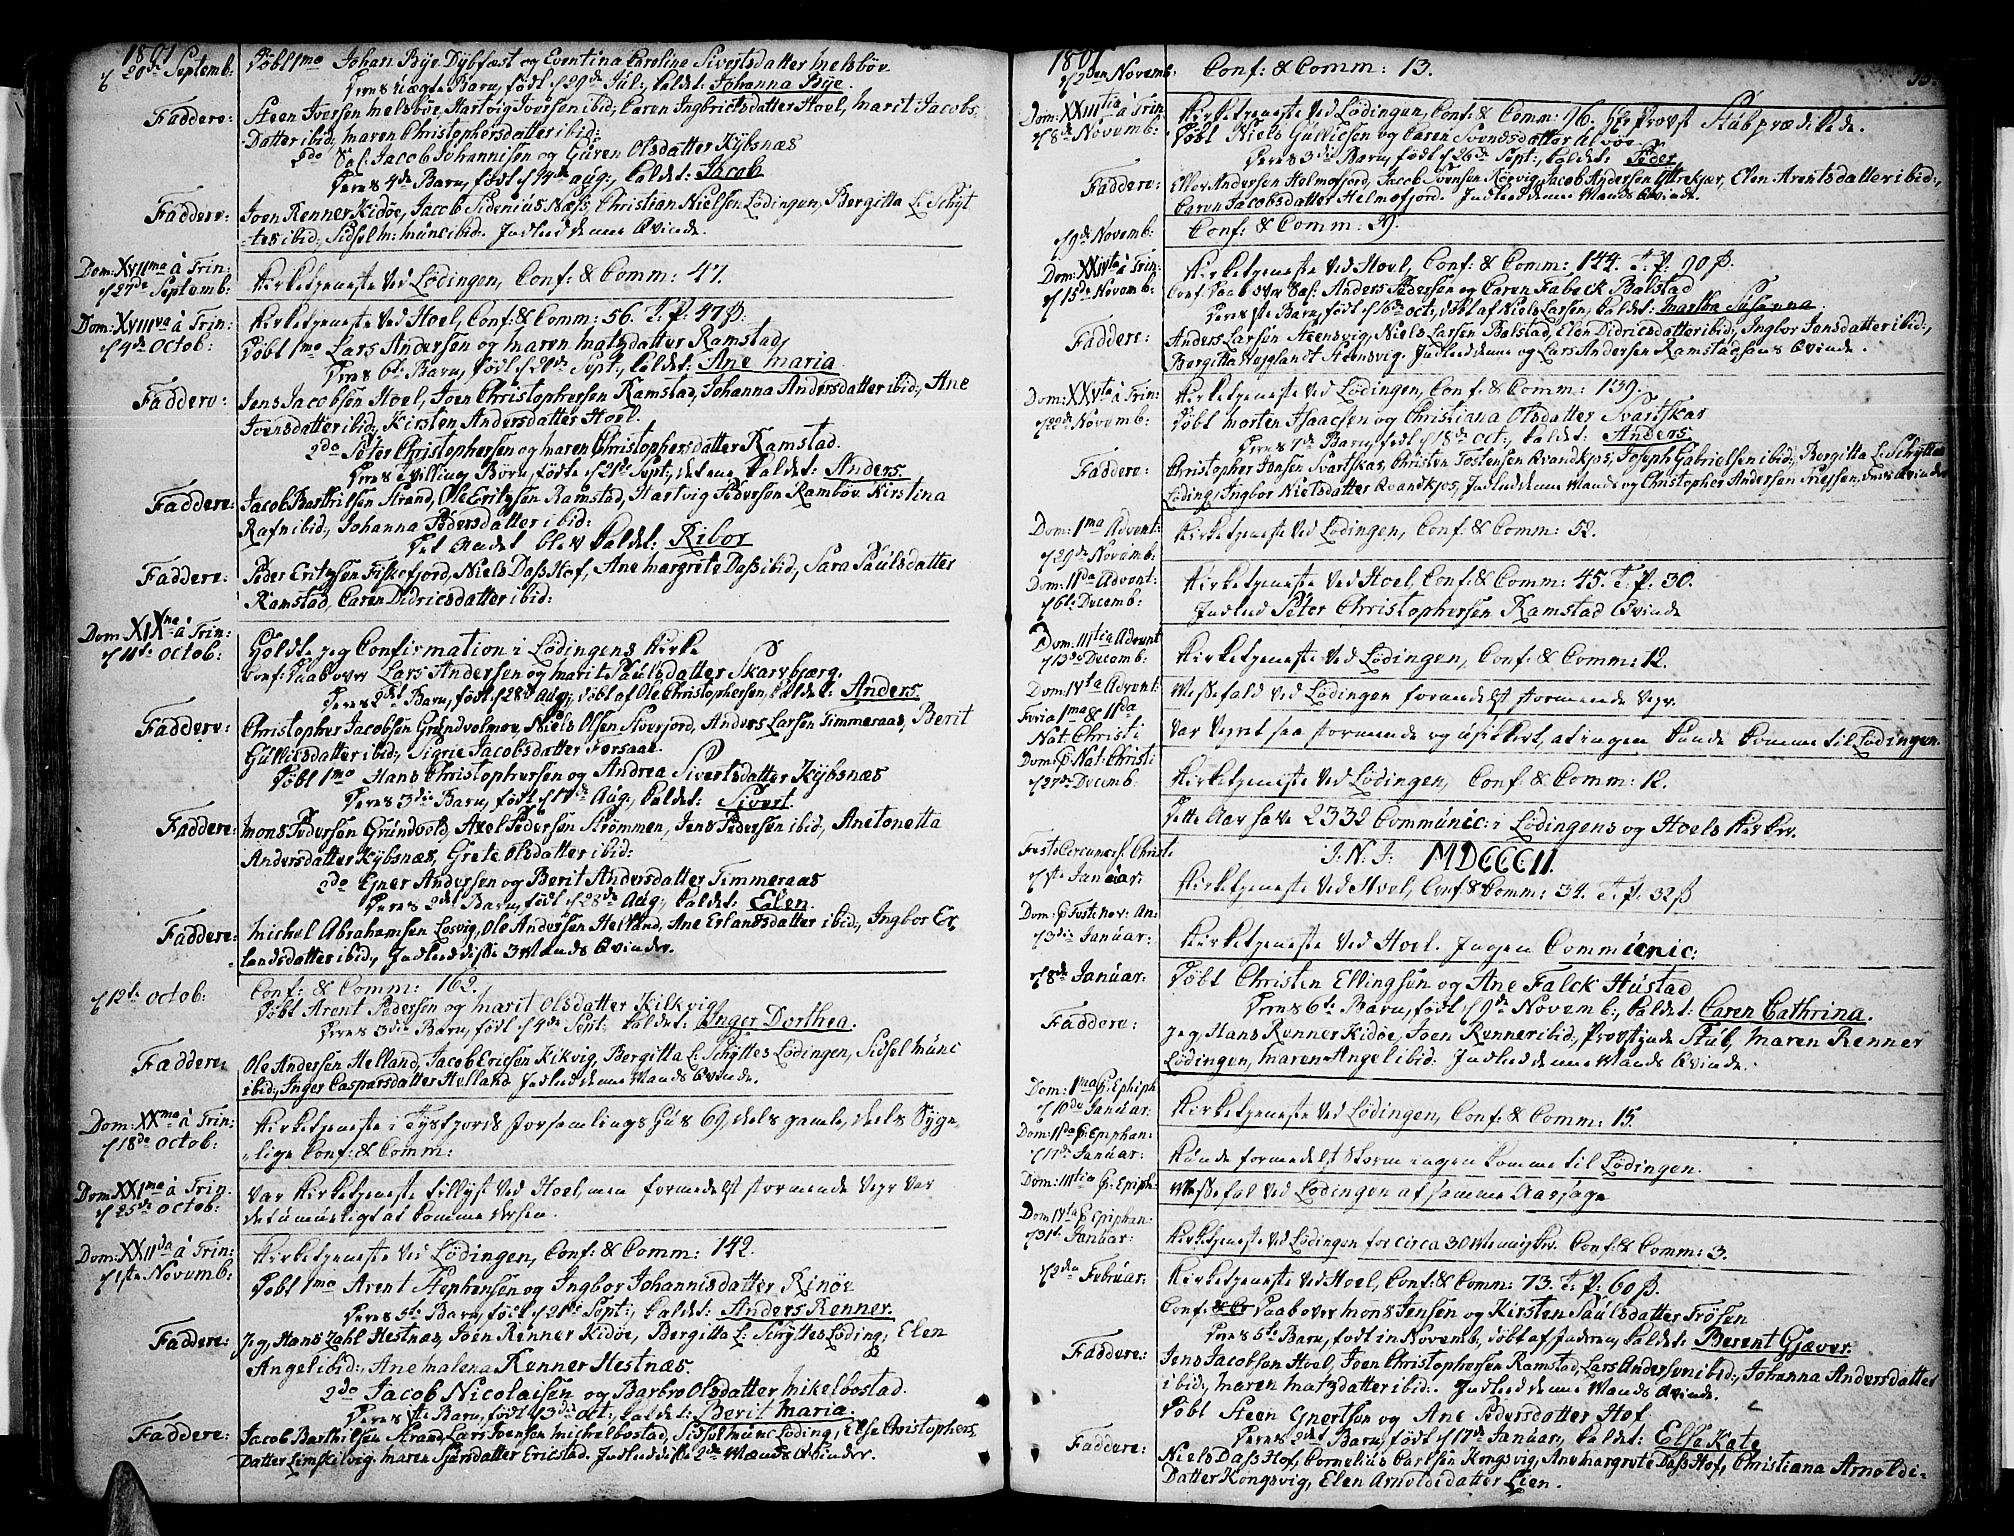 1801
d 20de Septemb: Döbt 1mo Johan Bye Dybfæst og Eventina Carolina Sivertsdatter Melsböv
Deres uægte Barn, födt d 29de Jul: kaldet: Johanna Bye.
Faddere: Steen Iversen Melsböe, Hartvig Iversen ibid; Caren Ingbrictsdatter Hoel, Marit Jacobs
Datter ibid; Maren Christophersdatter ibid:
2do Sal: Jacob Johannisen og Guren Olsdatter Kybsnæs
Deres 4de Barn, födt d 14de Aug:, kaldet: Jacob
Faddere: Joen Renner Kidöe, Jacob Sidenius Næss, Christian Nielsen Lödingen, Bergitta L: Schyt
-tes ibid; Sidsel M: Munc ibid. Indled denne Qvinde.
Dom: XVIIma à Trin:
d 27de Septemb: Kirketjeneste ved Lödingen, Conf: & Comm: 47.
Dom: XVIIIva à Trin:
d 4de Octob: Kirketjeneste ved Hoel, Conf: & Comm: 56. T. P. 47 ß.
Döbt 1mo Lars Andersen og Maren Matzdatter Ramstad,
Deres 6te Barn, födt d 20de Sept:, kaldet: Ane Maria
Faddere: Jens Jacobsen Hoel, Joen Christophersen Ramstad, Johanna Andersdatter ibid; Ane
Joensdatter ibid; Kirsten Andersdatter Hoel.
2do Peter Christophersen og Maren Christophersdatter Ramstad.
Deres Tvilling Börn, födte d 21de Sept:, det ene kaldet: Anders.
Faddere: Jacob Barthilsen Strand, Ole Eritzsen Ramstad, Hartvig Pedersen Ramböv Kirstina
Rafn ibid; Johanna Pedersdatter ibid:
Det Andet blev kaldet: Ribor
Faddere: Peder Eritzsen Fiskefjord, Niels Dass Hof, Ane Margrete Dass ibid; Sara Paulsdatter
Ramstad, Caren Didricsdatter ibid:
Dom: XIXna à Trin:
d 11te Octob: Holdte jeg Confirmation i Lödingens Kirke
Conf: Daab over Lars Andersen og Marit Paulsdatter Skarvbjerg.
Deres 2det Barn, födt d 28de Aug:, döbt af Ole Christophersen, kaldet: Anders.
Faddere: Christopher Jacobsen Grundvolmov, Niels Olsen Stverfjord, Anders Larsen Timmeraas, Berit
Gullicsdatter ibid; Sigrie Jacobsdatter Forsaae.
Döbt 1mo Hans Christophersen og Andrea Sivertsdatter Kybsnæs
Deres 3die Barn, födt d 17de Aug:, kaldet: Sivert.
Faddere: Mons Pedersen Grundvold, Axel Pedersen Strömmen, Jens Pedersen ibid, Anetonetta
Andersdatter Kybsnæs, Grete Olsdatter ibid:
2do Ener Andersen og Berit Andersdatter Timmeraas
Deres 2det Barn, födt d 28de Aug:, kaldet: Elen.
Faddere: Michel Abrahamsen Losvig, Ole Andersen Helland, Ane Erlandsdatter ibid; Ingbor Er,
landsdatter ibid; Indled disse 3 Mands Qvinder.
d 12te Octob: Conf: & Comm: 162.
Döbt Arent Pedersen og Marit Olsdatter Kilkvig
Deres 3die Barn, födt d 4de Sept: kaldet: Inger Dorthea.
Faddere: Ole Andersen Helland, Jacob Ericsen Kikvig, Bergitta L: Schyttes Lödingen, Sidsel Munc
ibid; Inger Caspersdatter Helland. Indled denne Mands Qvinde.
Dom: XXma à Trin:
d 18de Octob: Kirketjeneste i Tysfjords Forsamlings Hus 69, deels gamle, deels Syge,
-lige Conf: & Comm:
Dom: XXIma à Trin:
d 25de Octob: Var Kirketjeneste tillyst ved Hoel, men formedelst stormende Vejr var
det umueligt at komme dersen.
Dom: XXIIda à Trin:
d 1ste Novemb: Kirketjeneste ved Lödingen, Conf: & Comm: 142.
Döbt 1mo Arent Stephensen og Ingbor Johannisdatter Rinöe
Deres 5te Barn, födt d 21de Sept:, kaldet: Anders Renner.
Faddere: Jeg, Hans Zahl Hestnæs, Joen Renner Kidöe, Bergitta L: Schyttes Löding; Elen
Angel ibid; Ane Malena Renner Hestnæs.
2do Jacob Nicolaisen og Barbro Olsdatter Mikelbostad.
Deres 1ste Barn, födt d 3die Oct:, kaldet: Berit Maria.
Faddere: Jacob Barthilsen Strand, Lars Svensen Michelbostad, Sidsel Munc Löding; Else Christophers
Datter Limkilvig, Maren Sjursdatter Ericstad. Indled disse 2de Mænds Qvinder.
1801 53.
d 2den Novemb: Conf: & Comm: 13.
Dom: XXIIItia à Trin
d 8de Novemb: Kirketjeneste ved Lödingen, Conf: & Comm: 96. Hr Provst Stub prædikede.
Döbt Niels Gullicsen og Caren Svendsdatter Alvöe
Deres 3die Barn, födt d 26de Sept:, kaldet: Peder
Faddere: Ellev Andersen Helmofjord, Jacob Svensen Rögvig, Jacob Andersen Ottrekjær, Elen Arentsdatter ibid:,
Caren Jacobsdatter Helmofjord. Indled denne Mands Qvinde.
d 9de Novemb: Conf: & Comm. 39.
Dom: XXIVta à Trin:
d 15de Novemb: Kirketjeneste ved Hoel, Conf: & Comm: 144. T. P. 90 ß.
Conf: Daab over Sal: Anders Pedersen og Caren Falseck Balstad
Deres 1ste Barn, födt d 16de Oct:, döbt af Niels Larsen, kaldet: Martha Susanna.
Faddere: Anders Larsen Steensvig, Niels Larsen Balstad, Elen Didricsdatter ibid; Ingbor Jansdatter ibid;
Bergitta Hegglandt Steensvig. Indled denne og Lars Andersen Ramstad hans Qvinde.
Dom: XXVta à Trin:
d 22de Novemb: Kirketjeneste ved Lödingen, Conf: & Comm: 139.
Döbt Morten Isaacsen og Christiana Olsdatter Svartskar
Deres 7de Barn, födt d 18de Oct:, kaldet: Anders.
Faddere: Christopher Jensen Svartskar, Christen Tostensen Kvandkjos, Joseph Gabrielsen ibid; Bergitta L: Schyttes
Löding; Ingbor Nielsdatter Kvandkjos, Indled denne Mands og Christopher Andersen Snessen, deres Qvinder
Dom: 1ma Advent:
d 29de Novemb: Kirketjeneste ved Lödingen, Conf: & Comm: 52.
Dom: IIda Advent:
d 6te Decemb: Kirketjeneste ved Hoel, Conf: & Comm: 45. T. P. 30.
Indled Peter Christophersen Ramstad Qvinde
Dom: IIItia Advent
d 13de Decemb: Kirketjeneste ved Lödingen, Conf: & Comm: 12.
Dom: IVta Advent: Messefald ved Lödingen formedelst stormende Vejr.
Feria 1ma & IIda
Nat: Christi Var Vejret saa stormende og usikkert, at ingen kunde komme til Lödingen.
Dom: p: Nat: Christi
d 27de Decemb: Kirketjeneste ved Lödingen, Conf: & Comm: 12.
Dette Aar have 2332 Communic: i Lödingens og Hoels Kirker.
J. N. J. MDCCCII.
Fest: Circumcis: Christi
d 1ste Januar: Kirketjeneste ved Hoel, Conf & Comm: 34. T. P. 32 ß
Dom: p Fest: nov: An:
d 3die Januar: Kirketjeneste ved Hoel. Ingen Communic:
d 8de Januar: Döbt Christen Ellingsen og Ane Falck Hustad
Deres 6te Barn, födt d 9de Novemb:, kaldet: Caren Cathrina.
Faddere: Jeg, Hans Renner Kidöe, Joen Renner ibid; Provstjnde Stub, Maren Renner
Lödingen, Maren Angel ibid: Indled denne Mands Qvinde.
Dom: 1ma p. Ephiph
d 10de Januar: Kirketjeneste ved Lödingen, Conf: & Comm: 15.
Dom: IIda p: Epiphan:
d 17de Januar: Kunde formedelst Storm ingen komme til Lödingen.
Dom: IIItia p: Epiph: Messefal ved Lödingen af samme Aarsage
Dom: IVta p Epiphan:
d 31te Januar: Kirketjeneste ved Lödingen for circa 30 Mennisker. Conf: & Comm: 3.
d 2den Februar: Kirketjeneste ved Hoel, Conf: & Comm: 73. T. P. 60 ß.
Conf: Daab over Mons Jensen og Kirsten Paulsdatter Frösen
Deres 5te Barn, födt in Novemb:, döbt af Faderen, kaldet: Berent Gjæver.
Faddere: Jens Jacobsen Hoel, Joen Christophersen Ramstad, Lars Andersen ibid; Johanna Andersdatter
ibid; Maren Matzdatter ibid. Indled denne Mands Qvinde.
Döbt Steen Enertsen og Ane Pedersdatter Hof
Deres 2det Barn, födt d 17de Januar:, kaldet: Else Kate
Faddere: Niels Dass Hof, Cornelius Carlsen Kongsvig, Ane Margrete Dass Hof, Christiana Arnoldi-
Datter Kongsvig, Elen Arnoldsdatter Lien.